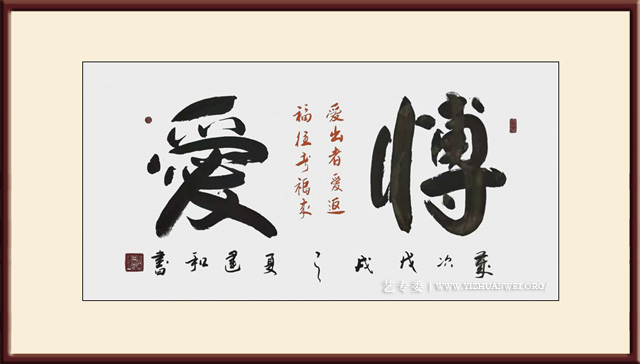 愽愛
愛出者愛返
福往者福來
歲次戊戌之夏建和書
艺专委 | WWW.YIZHUANWEI.ORG/